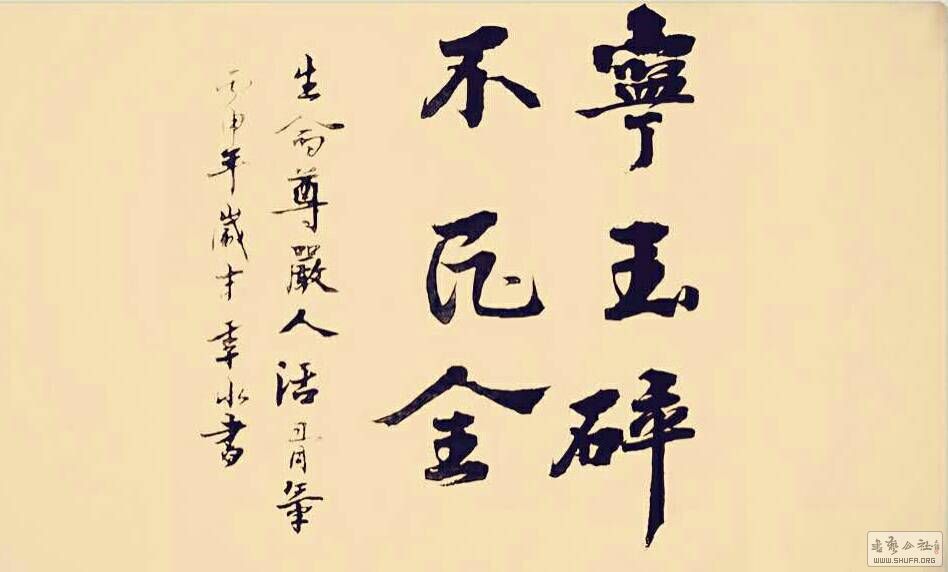 寧玉碎
不瓦全
生命尊嚴人活
丙申年歲末季水書
书艺公社
WWW.SHUFA.ORG